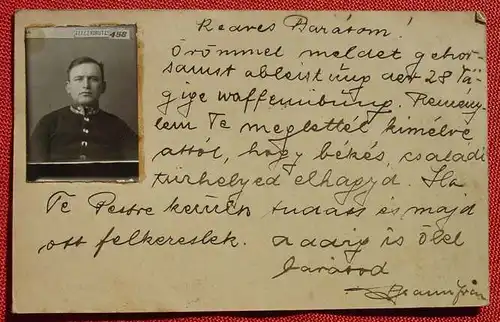 458
Kedves Barátom!
Örömmel meldet gehor-
samst ableistung der 28 Tä-
gige waffenübung. Remény-
lem Te meglettél kimélve
attól, hogy békés, családi
tűzhelyed elhagyd. Ha
Te Pestre kerülsz tudass és majd
ott felkereslek. addig is ölel
barátod